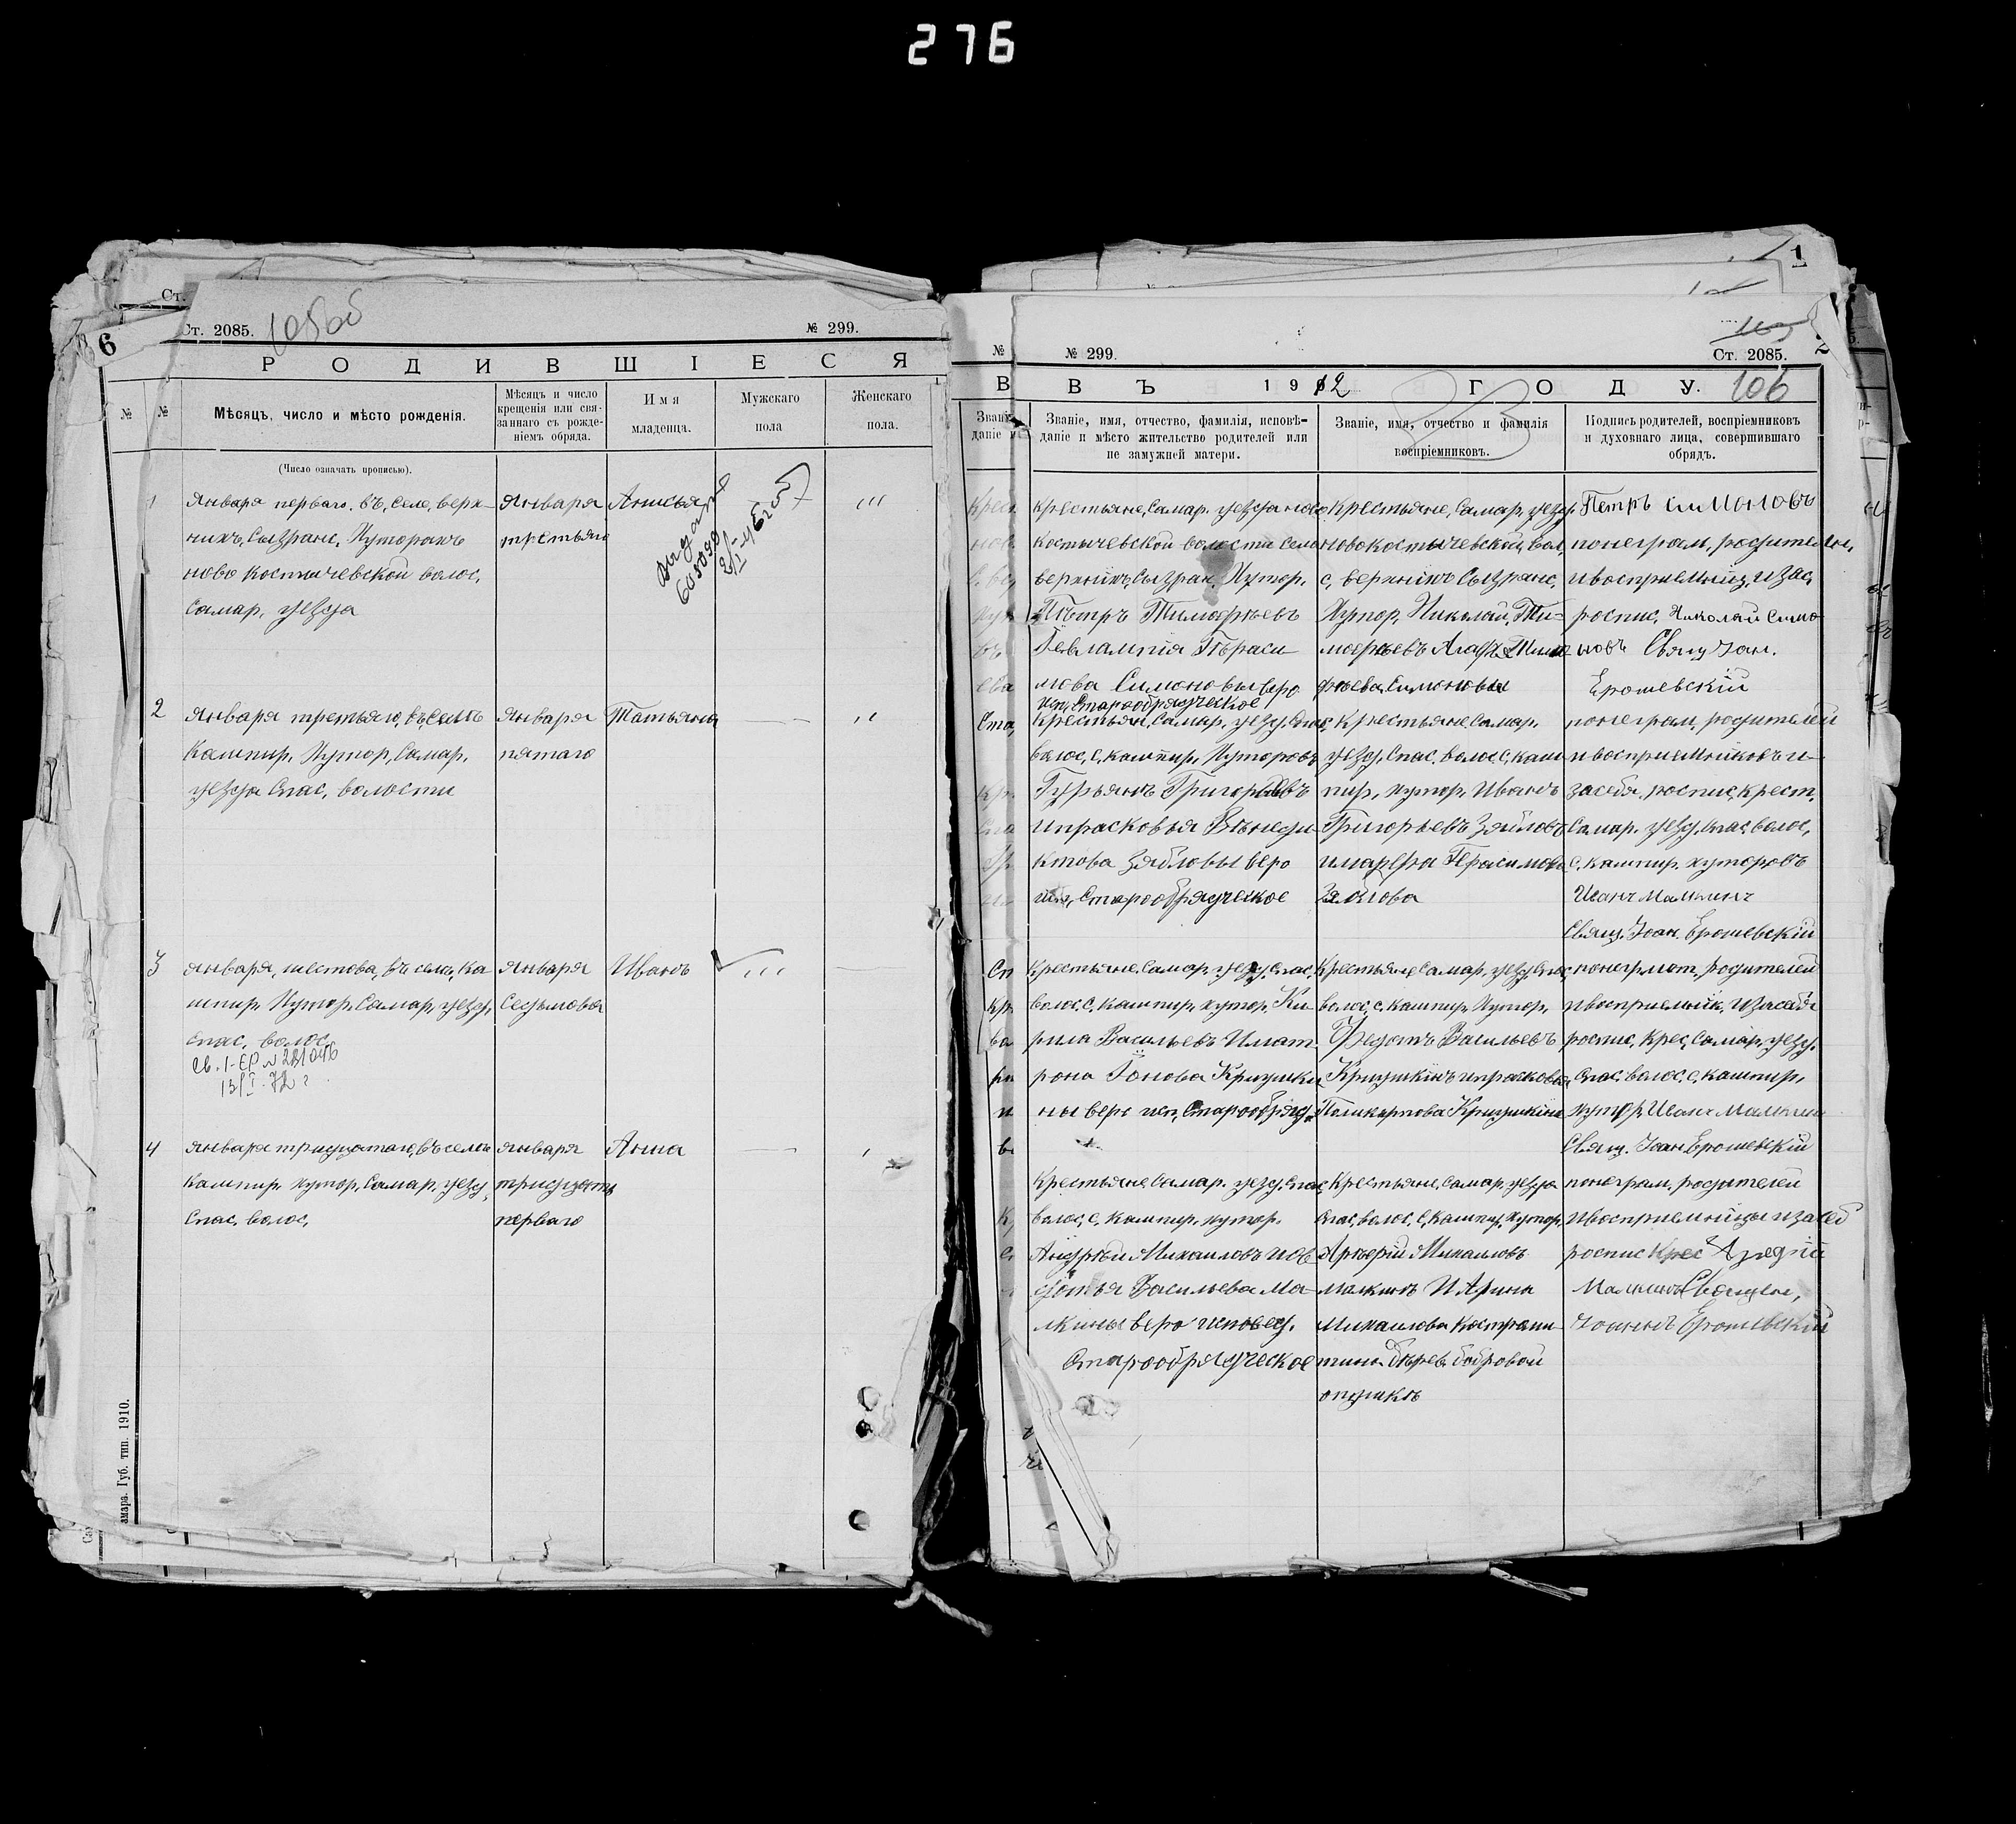 276
Ст.
Ст. 2085. 105об
№ 299.
6
РОДИВШІЕСЯ
№
№
Мѣсяцъ, число и мѣсто рожденія.
Мѣсяцъ и число
крещенія или свя-
заннаго съ рожде-
ніемъ обряда.
Имя
младенца.
Мужскаго
пола
Женскаго
пола.
(Число означать прописью).
1
Января перваго. въ, селе, верх-
нихъ, Сызране, Хуторахъ
ново костычевской волос,
Самар, уезда
Января
третьяго
Анисья
выдано
2
Января третьяго, въ селѣ
Кашпир, Хутор, Самар,
уезда Спас, волости
Января
пятаго
Татьяна
3
января, шестова, въ села, Ка
шпир, Хутор, Самар, уезду,
спас, волос,
января
Седьмова
Иванъ
4
января тридцатаго, въ селѣ
Кашпир, хутор, Самар, уезду,
Спас, волос,
января
тридцать
перваго
Анна
амара. Губ. тип. 1910.
1
№
№ 299.
Ст. 2085.
2
ВЪ 1912 ГОДУ. 106
Званіе, имя, отчество, фамилія, исповѣ-
даніе и мѣсто жительство родителей или
не замужней матери.
Званіе, имя, отчество и фамилія
воспріемниковъ.
Подпись родителей, воспріемниковъ
и духовнаго лица, совершившаго
обрядъ.
Крестьяне, Самар. уезда ново
костычевской волости село
верхнихъ Сызран, Хутор,
Пѣтръ Тимофѣевъ
Ѐвлампія Гѣраси
мова Симоновы веро
исп, Старообрядческое
Крестьяне, Самар, уезду
новокостычевской, вол,
с, верхнихъ Сызране,
Хутор, Николай, Ти-
мофѣевъ Агафья Тимо
фѣева, Симоновы
Петръ Симоновъ
понеграм, родителей,
и восприемниц, изас,
роспис, Николай Симо
новъ Свящ Іоан.
Ерошевскій
Крестьян, Самар, уезду, Спас
волос, с, кашпир, Хуторовъ
Гурьянъ Григорьевъ
и прасковья Вѣнеди
ктова Зяблова веро
исп, Старообрядческое
Крестьяне Самар,
уезду, Спас, волос, с, каш
пир, хутор, Иванъ
Григорьевъ Зябловъ
и марфа Герасимова
Зяблова
понеграм, родителей
и восприемниковъ и
засебя, роспис, крест,
Самар, уезду, спас, волос,
с. кашпир, хуторовъ
Иванъ Малкинъ
Свящ. Іоан. Ерошевскій
Крестьяне Самар. уезду, Спас,
волос, с, кашпир, хутор, Ки-
рила Васильевъ и мат
рона Іонова Кридушки
ны веро исп, Старообряд,
Крестьяне Самар, уезду, Спас
волос, с, кашпир, Хутор,
Федотъ Васильевъ
Кридушкінъ и прасковья
Поликарпова Кридушкіна
понеграмот, родителей
и восприемник, изасебя
роспис, Крес, Самар, уезду,
Спас, волос, с, кашпир,
хутор, Иванъ Малкин
Свящ. Іоан. Ерошевскій
Крестьяне Самар. уезду, Спас
волос, с, кашпир, хутор,
Андрѣй Михаиловъ и ев
докья Васильева Ма-
лкины веро исповед,
Старообрядческое
Крестьяне, Самар, уезда
Спас, волос, с, Кашпир, Хутор,
Михаиловъ
малкинъ и Арина
Михаилова
бобровой
понеграм, родителей
и восприемницы изасеб
роспис Крес
Малкинъ Священ,
Іоаннъ Ерошевскій